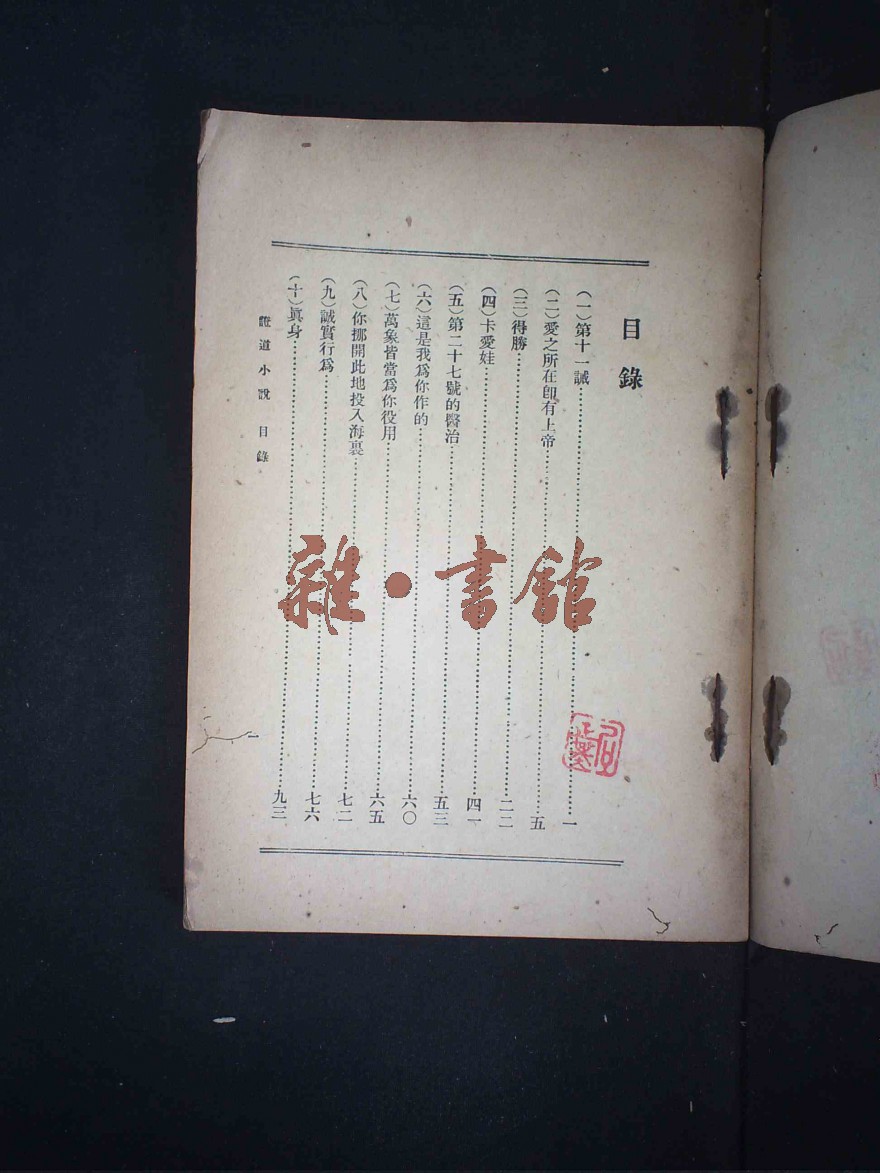 目錄
（一）第十一誡……一
（二）愛之所在即有上帝……五
（三）得勝……二二
（四）卡愛娃……四一
（五）第二十七號的醫治……五三
（六）這是我爲你作的……六〇
（七）萬象皆當爲你役用……六五
（八）你挪開此地投入海裏……七二
（九）誠實行爲……七六
（十）眞身……九三
證道小說 目錄
雜·書館